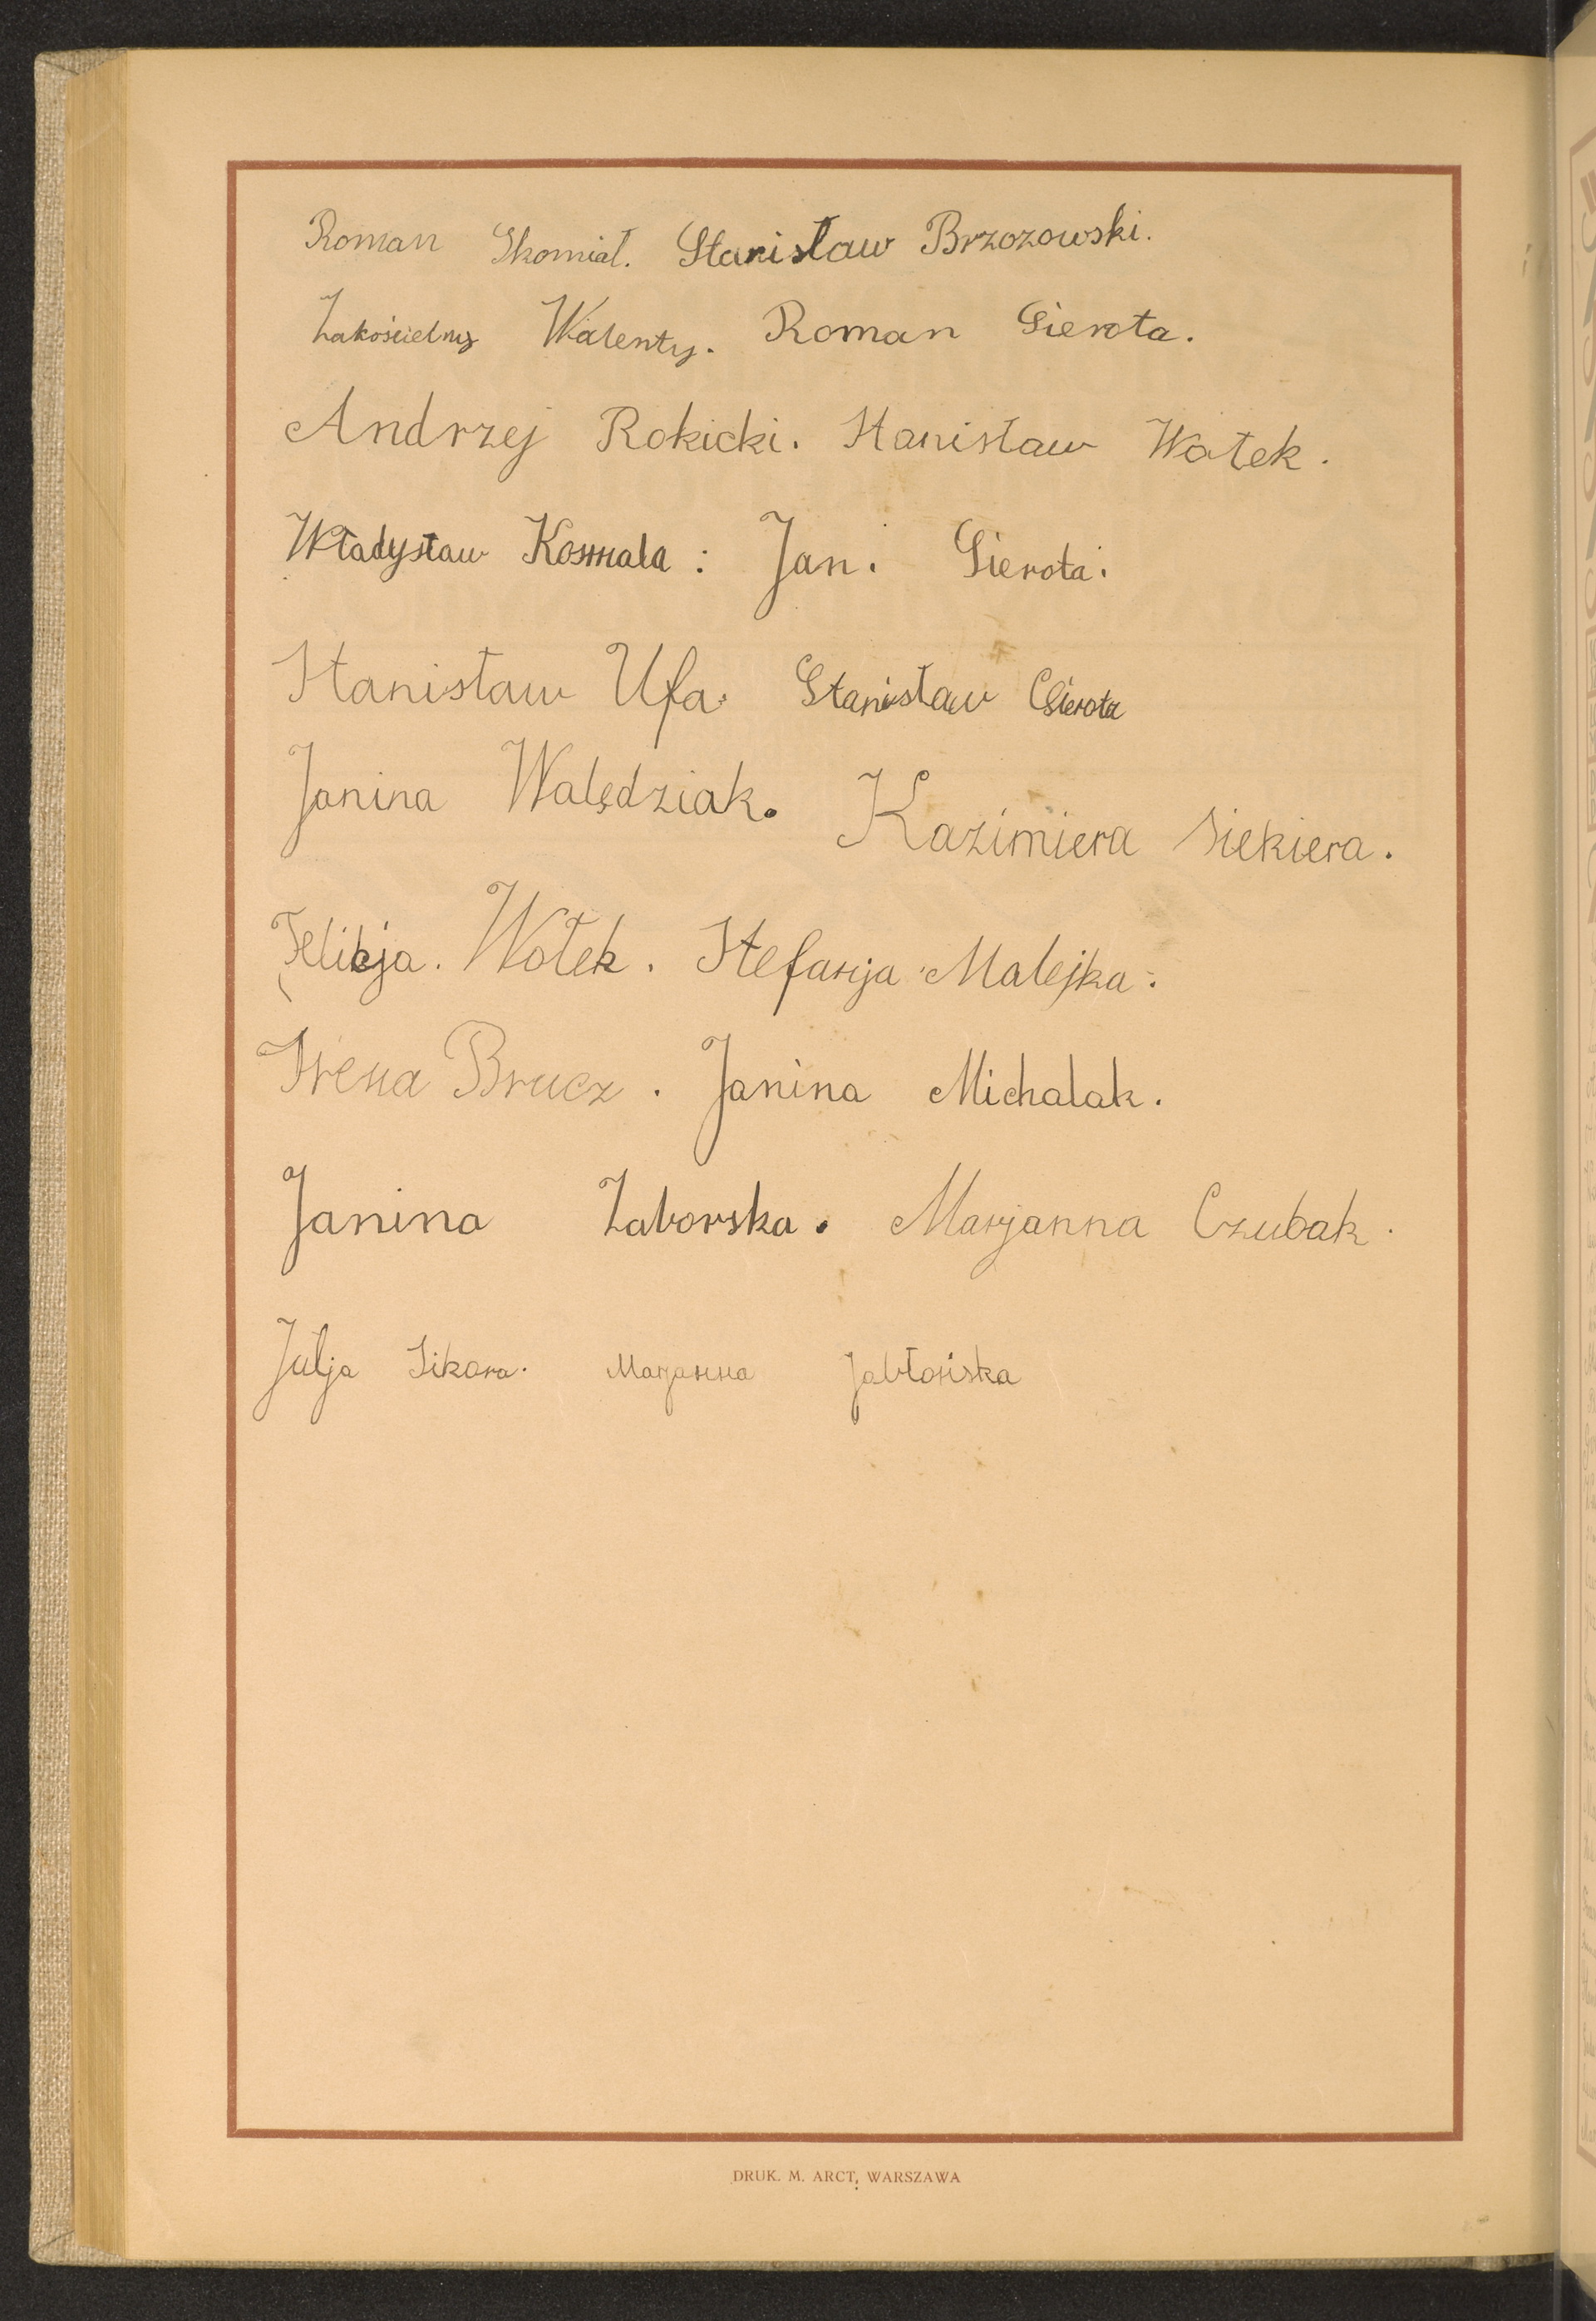 Roman Skomiał. Stanisław Brzozowski.
Zakościelny Walenty. Roman Sierota.
Andrzej Rokicki. Stanisław Wołek.
Władysław Kosmala: Jan. Sierota.
Stanisław Ufa. Stanisław Sierota
Janina Walędziak. Kazimiera Siekiera.
Felicja. Wołek. Stefanja Malejka.
Irena Brucz. Janina Michalak.
Janina Zaborska. Marjanna Czubak.
Julja Sikora. Marjanna Jabłońska
DRUK. M. ARCT, WARSZAWA